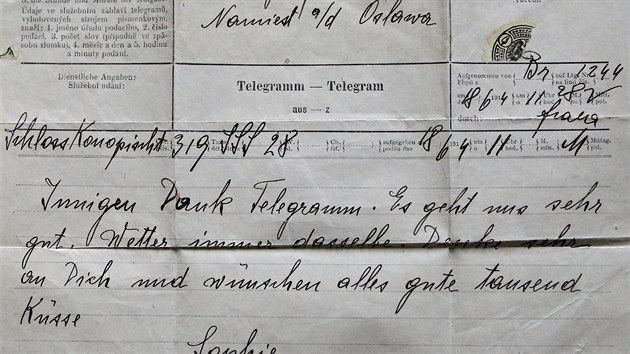 Údaje ve služebním záhlaví telegramů,
vyhotovených strojem písmenkovým,
značí: 1. jméno úřadu podacího, 2. číslo
podací, 3. počet slov (případně ve způ-
sobu zlomku), 4. měsíc a den a 5. hodinu
a minuty podání.
Namiest a/d Oslawa
Dienstliche Angaben:
Služební udání:
Telegramm — Telegram
aus — z
Aufgenommen von
Přijal s
auf Ltg. Nr.
na lince čís.
1244
18/6 4 11 Uhr
hod. M.
min.
durch:
Schloss Konopischt 319 28 18/6 4 11 M
aufgegeben
podáno dne
am Uhr
hod. M.
min. Mittag.
pol.
Innigen Dank Telegramm. Es geht uns sehr
gut. Wetter immer dasselbe. Denke sehr
an Dich und wünschen alles gute tausend
Küsse
Sophie